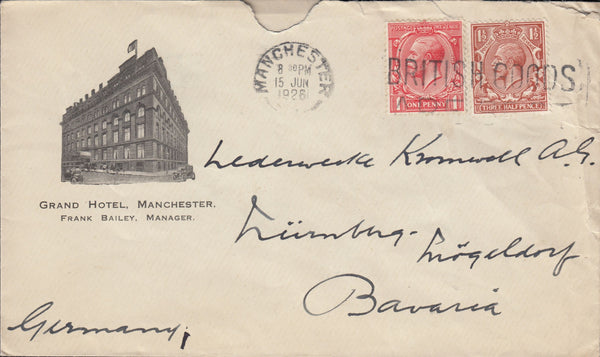 MANCHESTER
8 30 PM
15 JUN
1926
BRITISH GOODS
ONE PENNY
1½ 1½
THREE HALFPENCE
GRAND HOTEL, MANCHESTER.
FRANK BAILEY, MANAGER.
Lederwerke Kromwell A.G.
Nürnberg-Mögeldorf
Bavaria
Germany